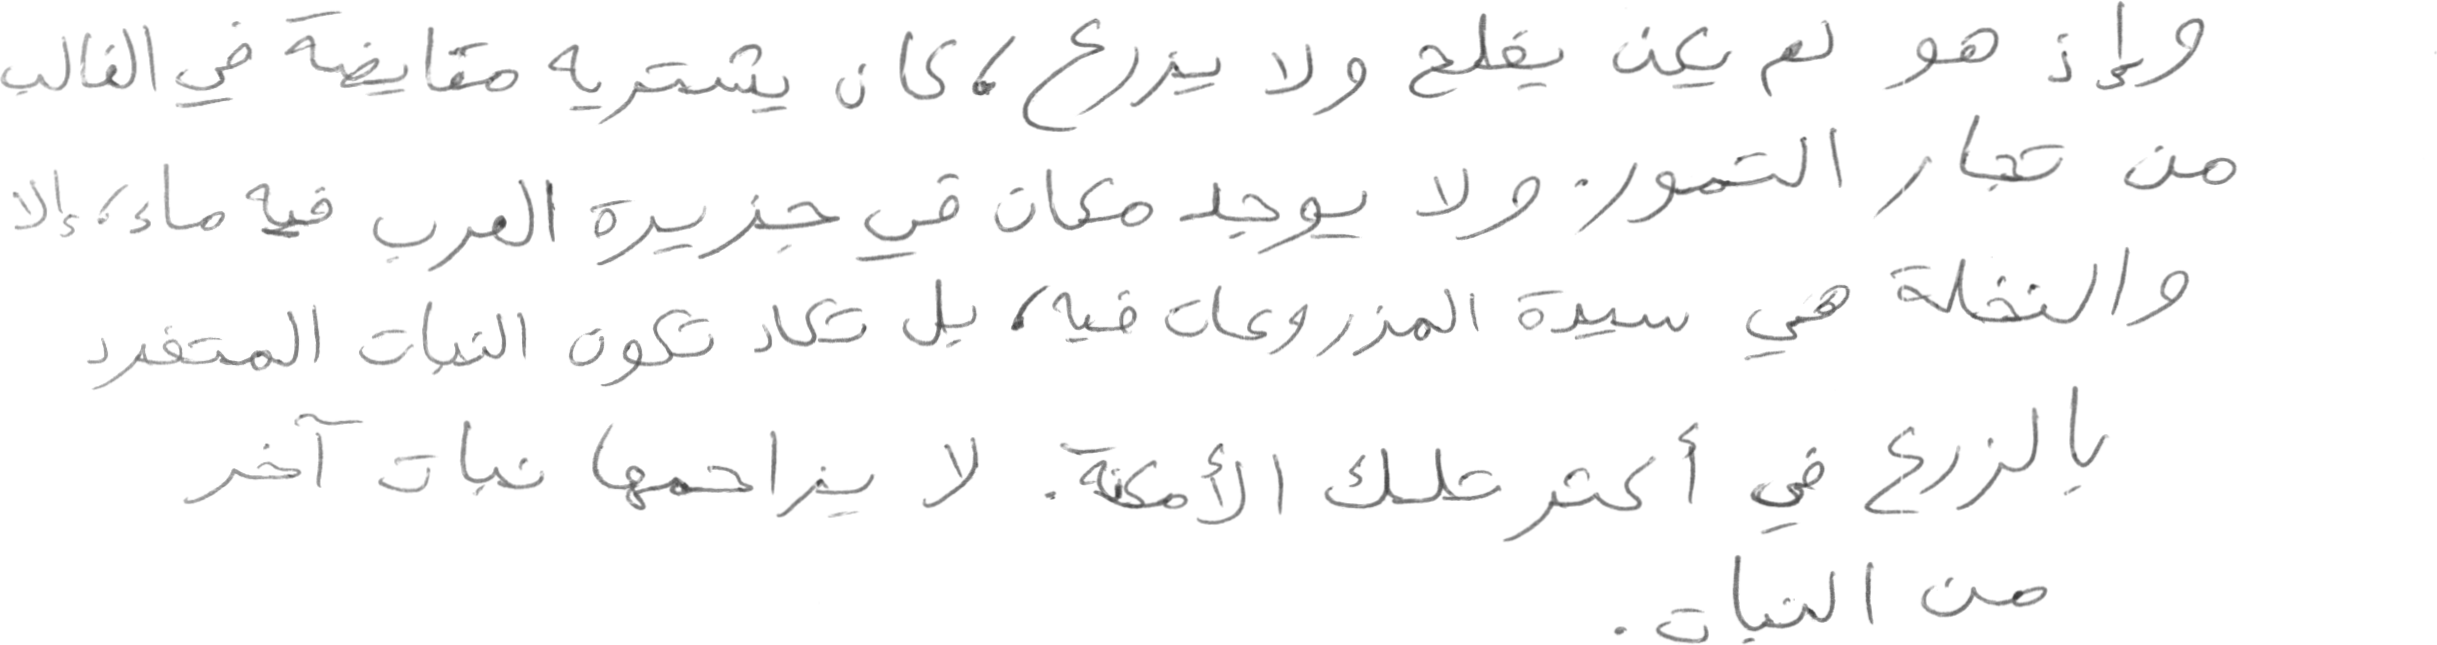 وإذ هو لم يكن يفلح ولا يزرع، كان يشتريه مقايضة في الغالب
من تجار التمور. ولا يوجد مكان في جزيرة العرب فيه ماء، إلا
والنخلة هي سيدة المزروعات فيه، بل تكاد تكون النبات المتفرد
بالزرع في أكثر تلك الأمكنة. لا يزاحمها نبات آخر
من النبات.